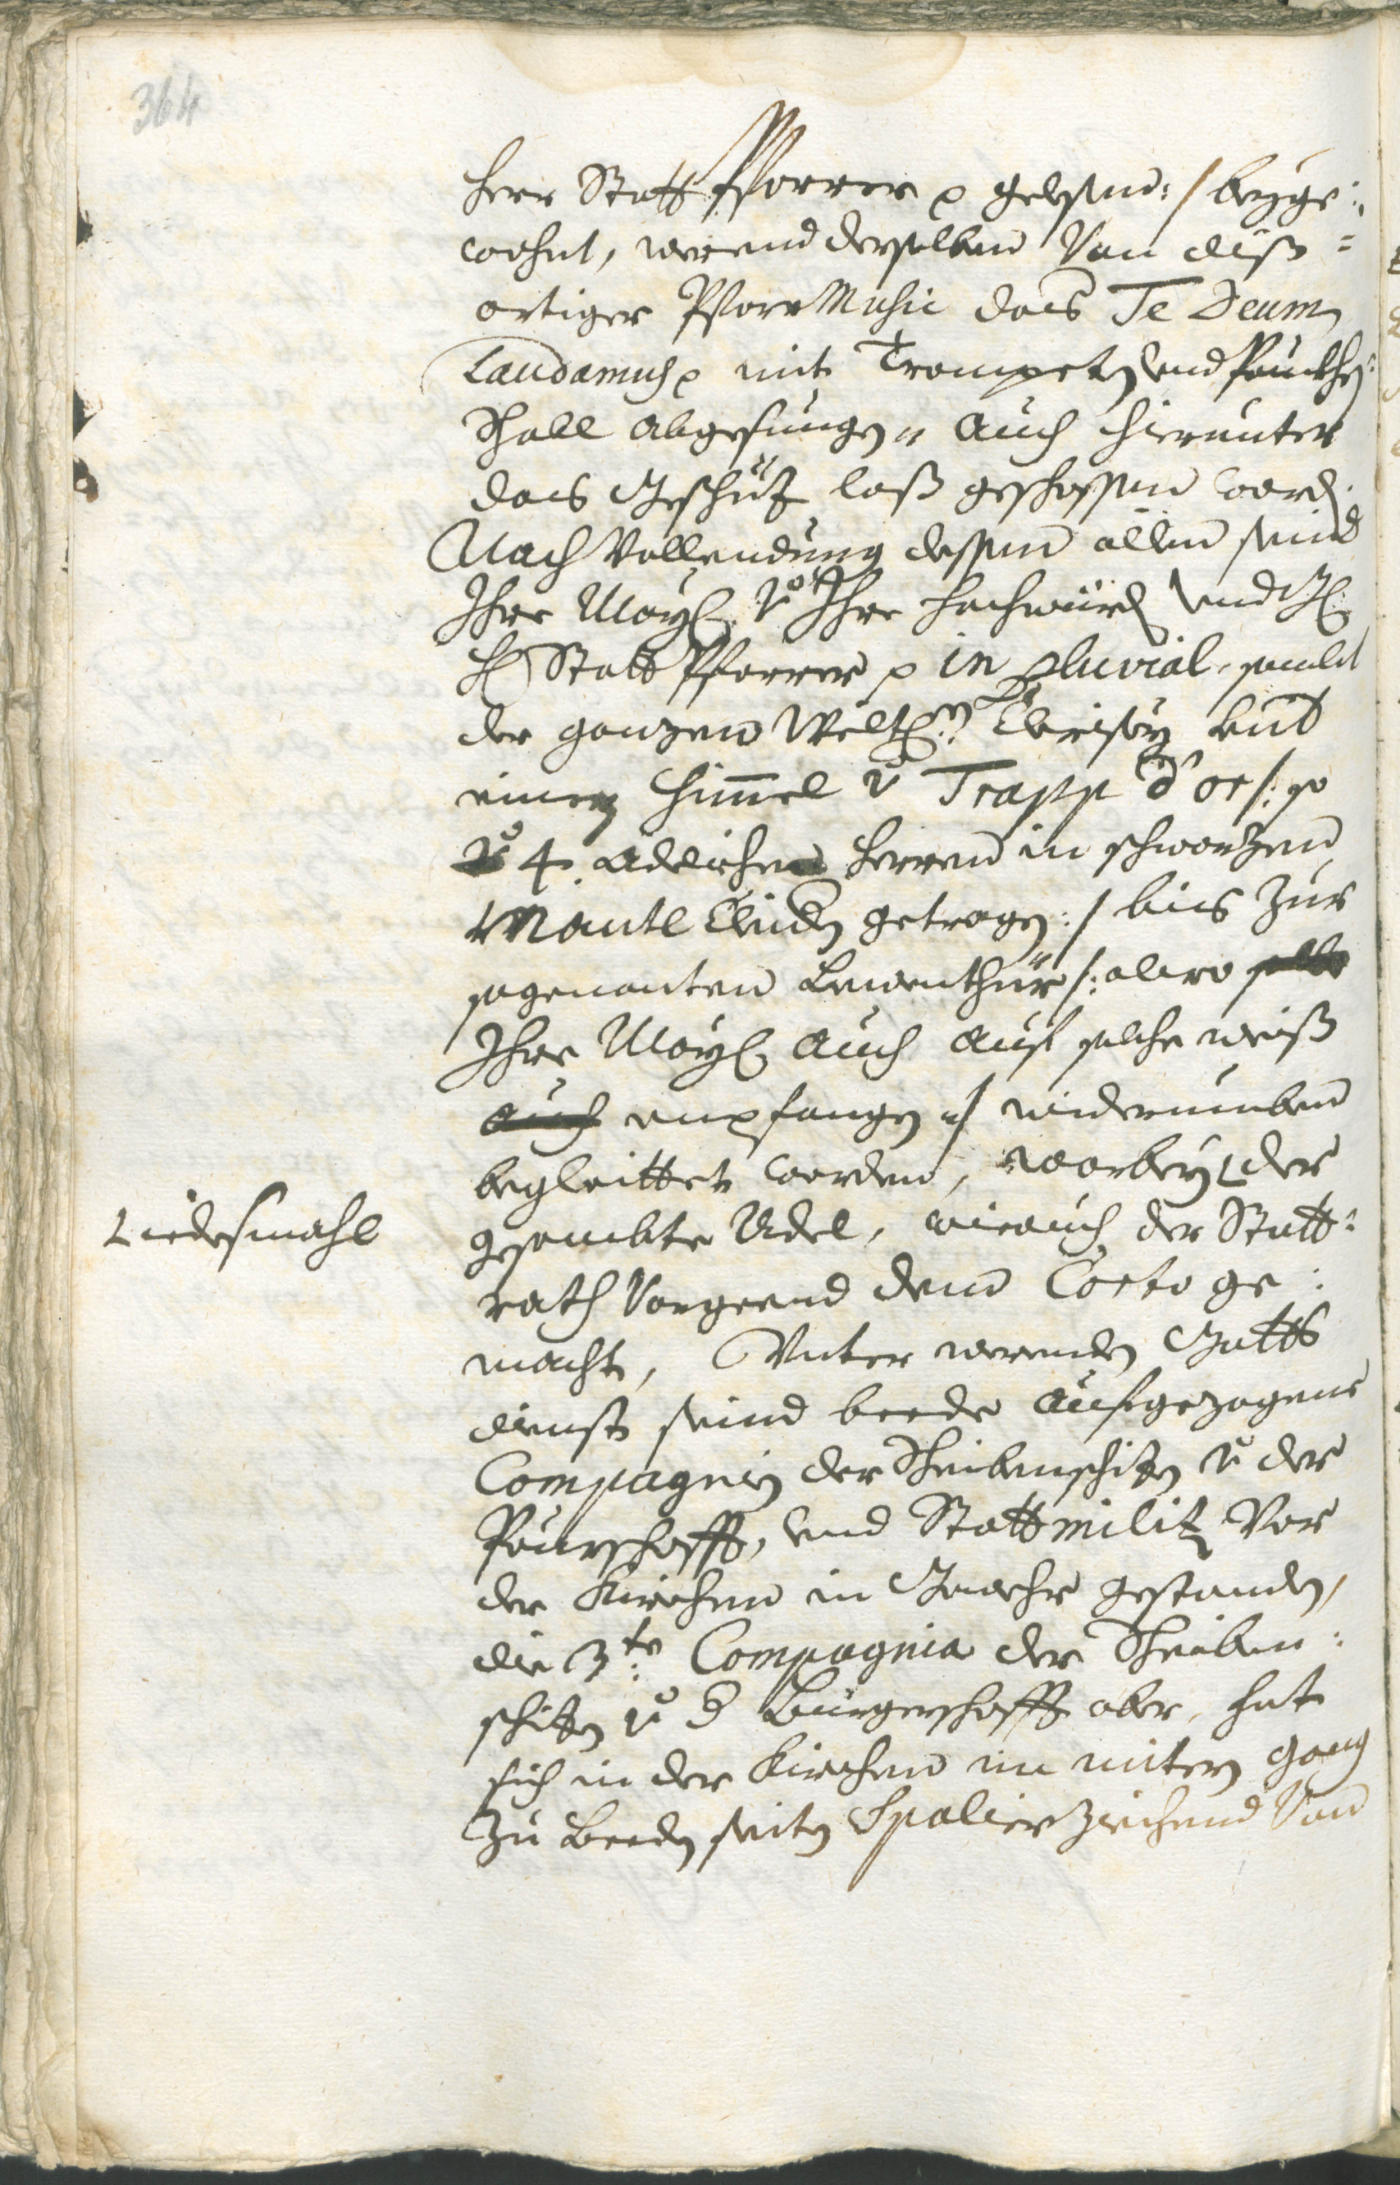 364
Herr Statt Pfarrer p gelesen :/ beyge:
wohnt, werend derselben von diß=
ortiger Pfarr Music das Te Deum
Laudamus p mit Trompeten und Paukhen:
schall abgesungen, auch hierunter
das Geschüz loß geschossen word.
Nach Vollendung dessen allen seind
Ihre Mayt. v. Ihro hochwürd und
H Statt Pfarrer p in Pluvial, sambt
der ganzen Weltl. Clerisey unt
einem Himmel v Trapp d'or /: so
v 4. adelichen Herren in schwarzen
Mantl Claidern getragen :/ bis zur
sogenanten Lewenthür /: alwo
Ihre Mayt auch auf solche weiß
auch empfangen :/ widerumben
begleittet worden, worbey der
Liedesmahl
gesambte Adel, wie auch der Statt:
rath vorgeend den Corto ge:
macht, Unter werenden Gotts
dienst seind beede aufgezogene
Compagnien der Scheibenschizen v der
Paurschafft, und Stattmiliz vor
der Kirchen in Gewehr gestanden,
die 3te Compagnia der Scheiben:
schizen v d Burgerschafft aber, hat
sich in der Kirchen im mitern Gang
zu beeden seiten Spalier ziehend von